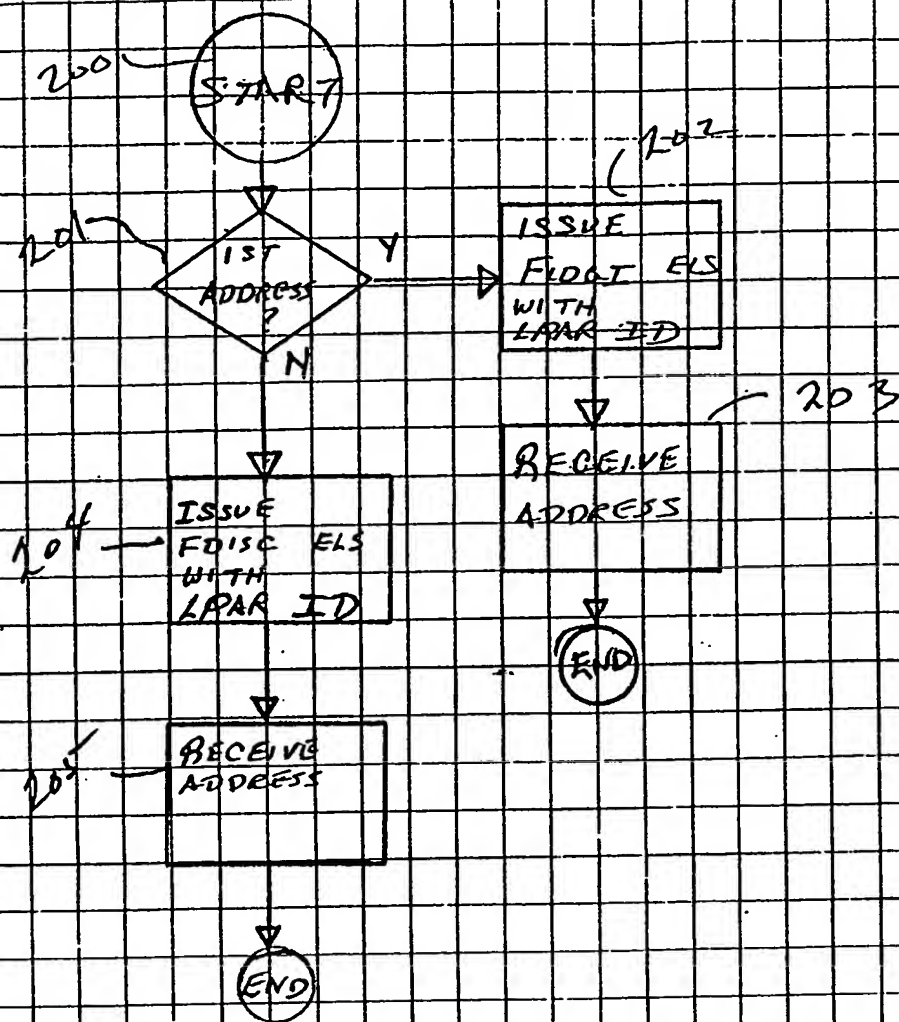 200
START
201
1ST
ADDRESS
?
Y
N
202
ISSUE
ELS
WITH
LPAR ID
203
RECEIVE
ADDRESS
END
204
ISSUE
FDISC ELS
WITH
LPAR ID
205
RECEIVE
ADDRESS
END